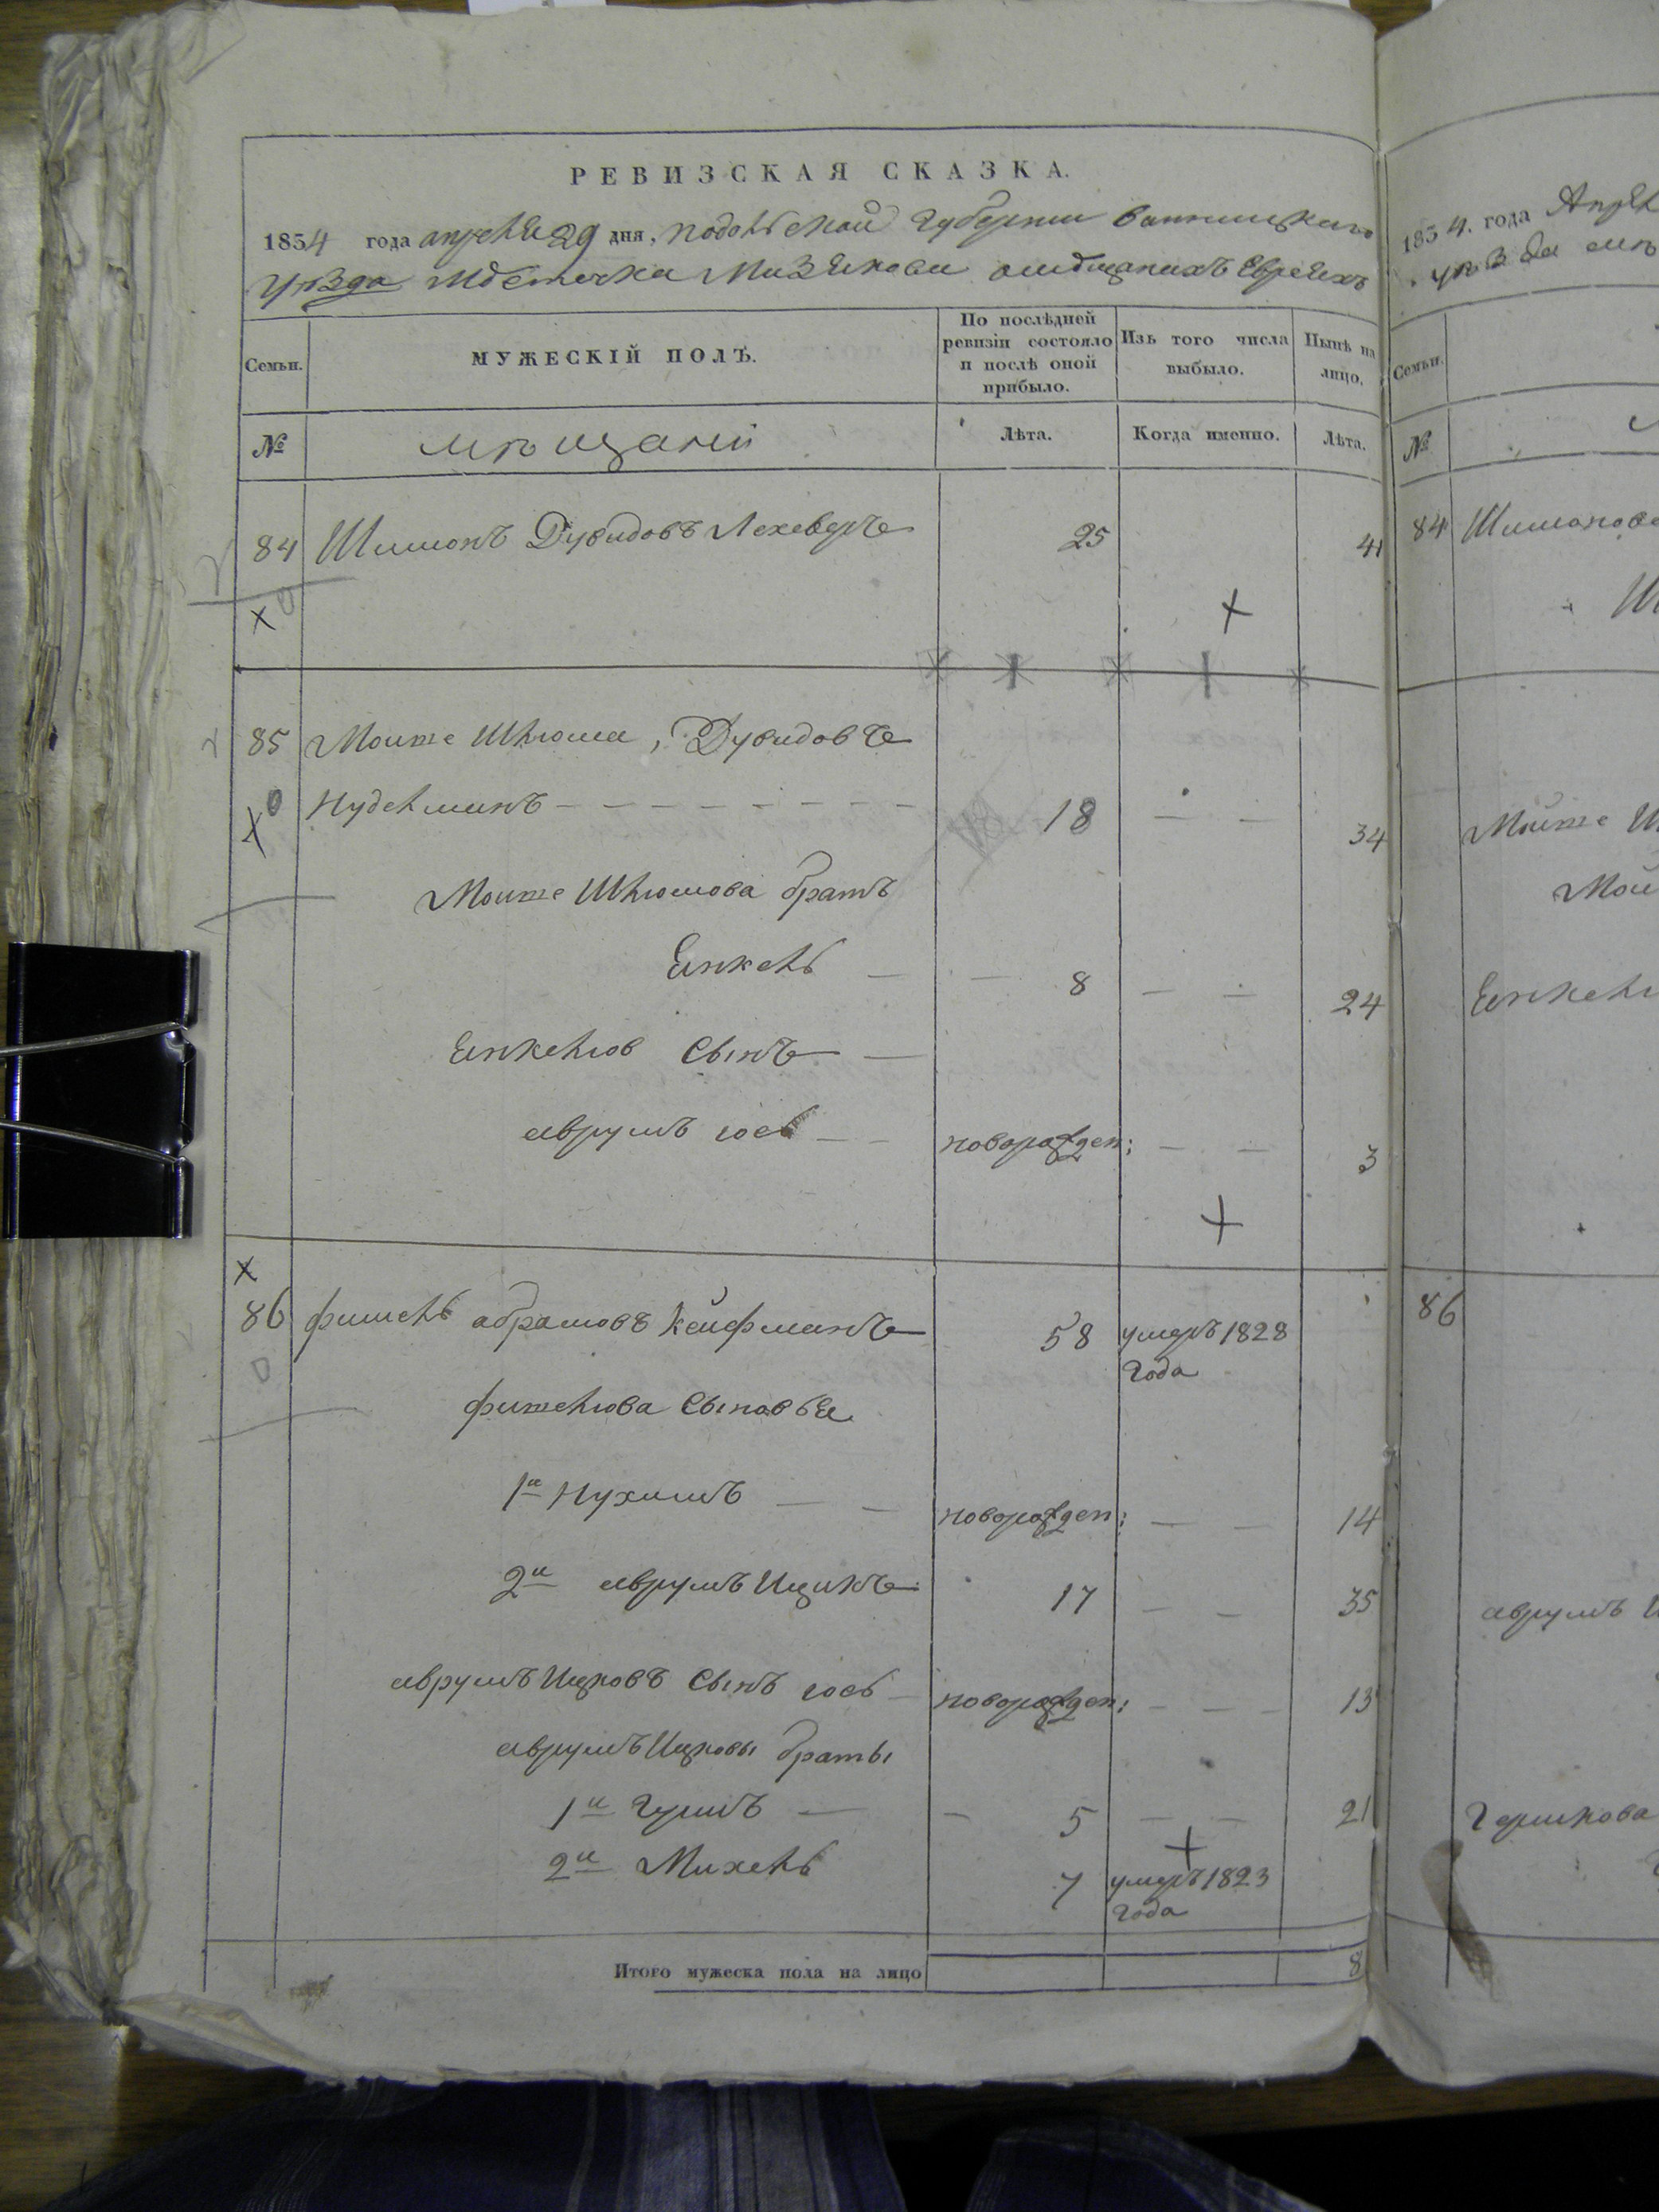 РЕВИЗСКАЯ СКАЗКА.
1834 года апреля 29 дня, подольской губернии винницкаго
уѣзда мѣстечка Мизякова омѣщанихъ Евреяхъ
Семьи. МУЖЕСКІЙ ПОЛЪ. По послѣдней ревизіи состояло и послѣ оной прибыло. Изъ того числа выбыло. Нынѣ на лицо.
№ мѣщаны Лѣта. Когда именно. Лѣта.
84 Шимонъ Дувидовъ Лехеверъ 25 41
85 Мошке Шлюма, Дувидовъ
Нудельманъ 18 34
Мошке Шлюмова братъ
Янкель 8 24
Янкелюв сынъ
аврумъ іось новорожден: 3
86 фишель абрамовъ Койфманъ 58 умеръ 1828
года
фишелюва сыновья
1й Нухимъ новорожден: 14
2й аврумъ Ицикъ 17 35
аврумъ Ицковъ сынъ іось новорожден: 13
аврумъ Ицковы браты
1й Гершъ 5 21
2й Михель 7 умеръ 1823
года
Итого мужеска пола на лицо 8
1834. года Апрел
уѣзда мѣ
Семьи.
№
84 Шимонова
Мошке Ш
Мош
Янкел
86
аврумъ И
Гершкова